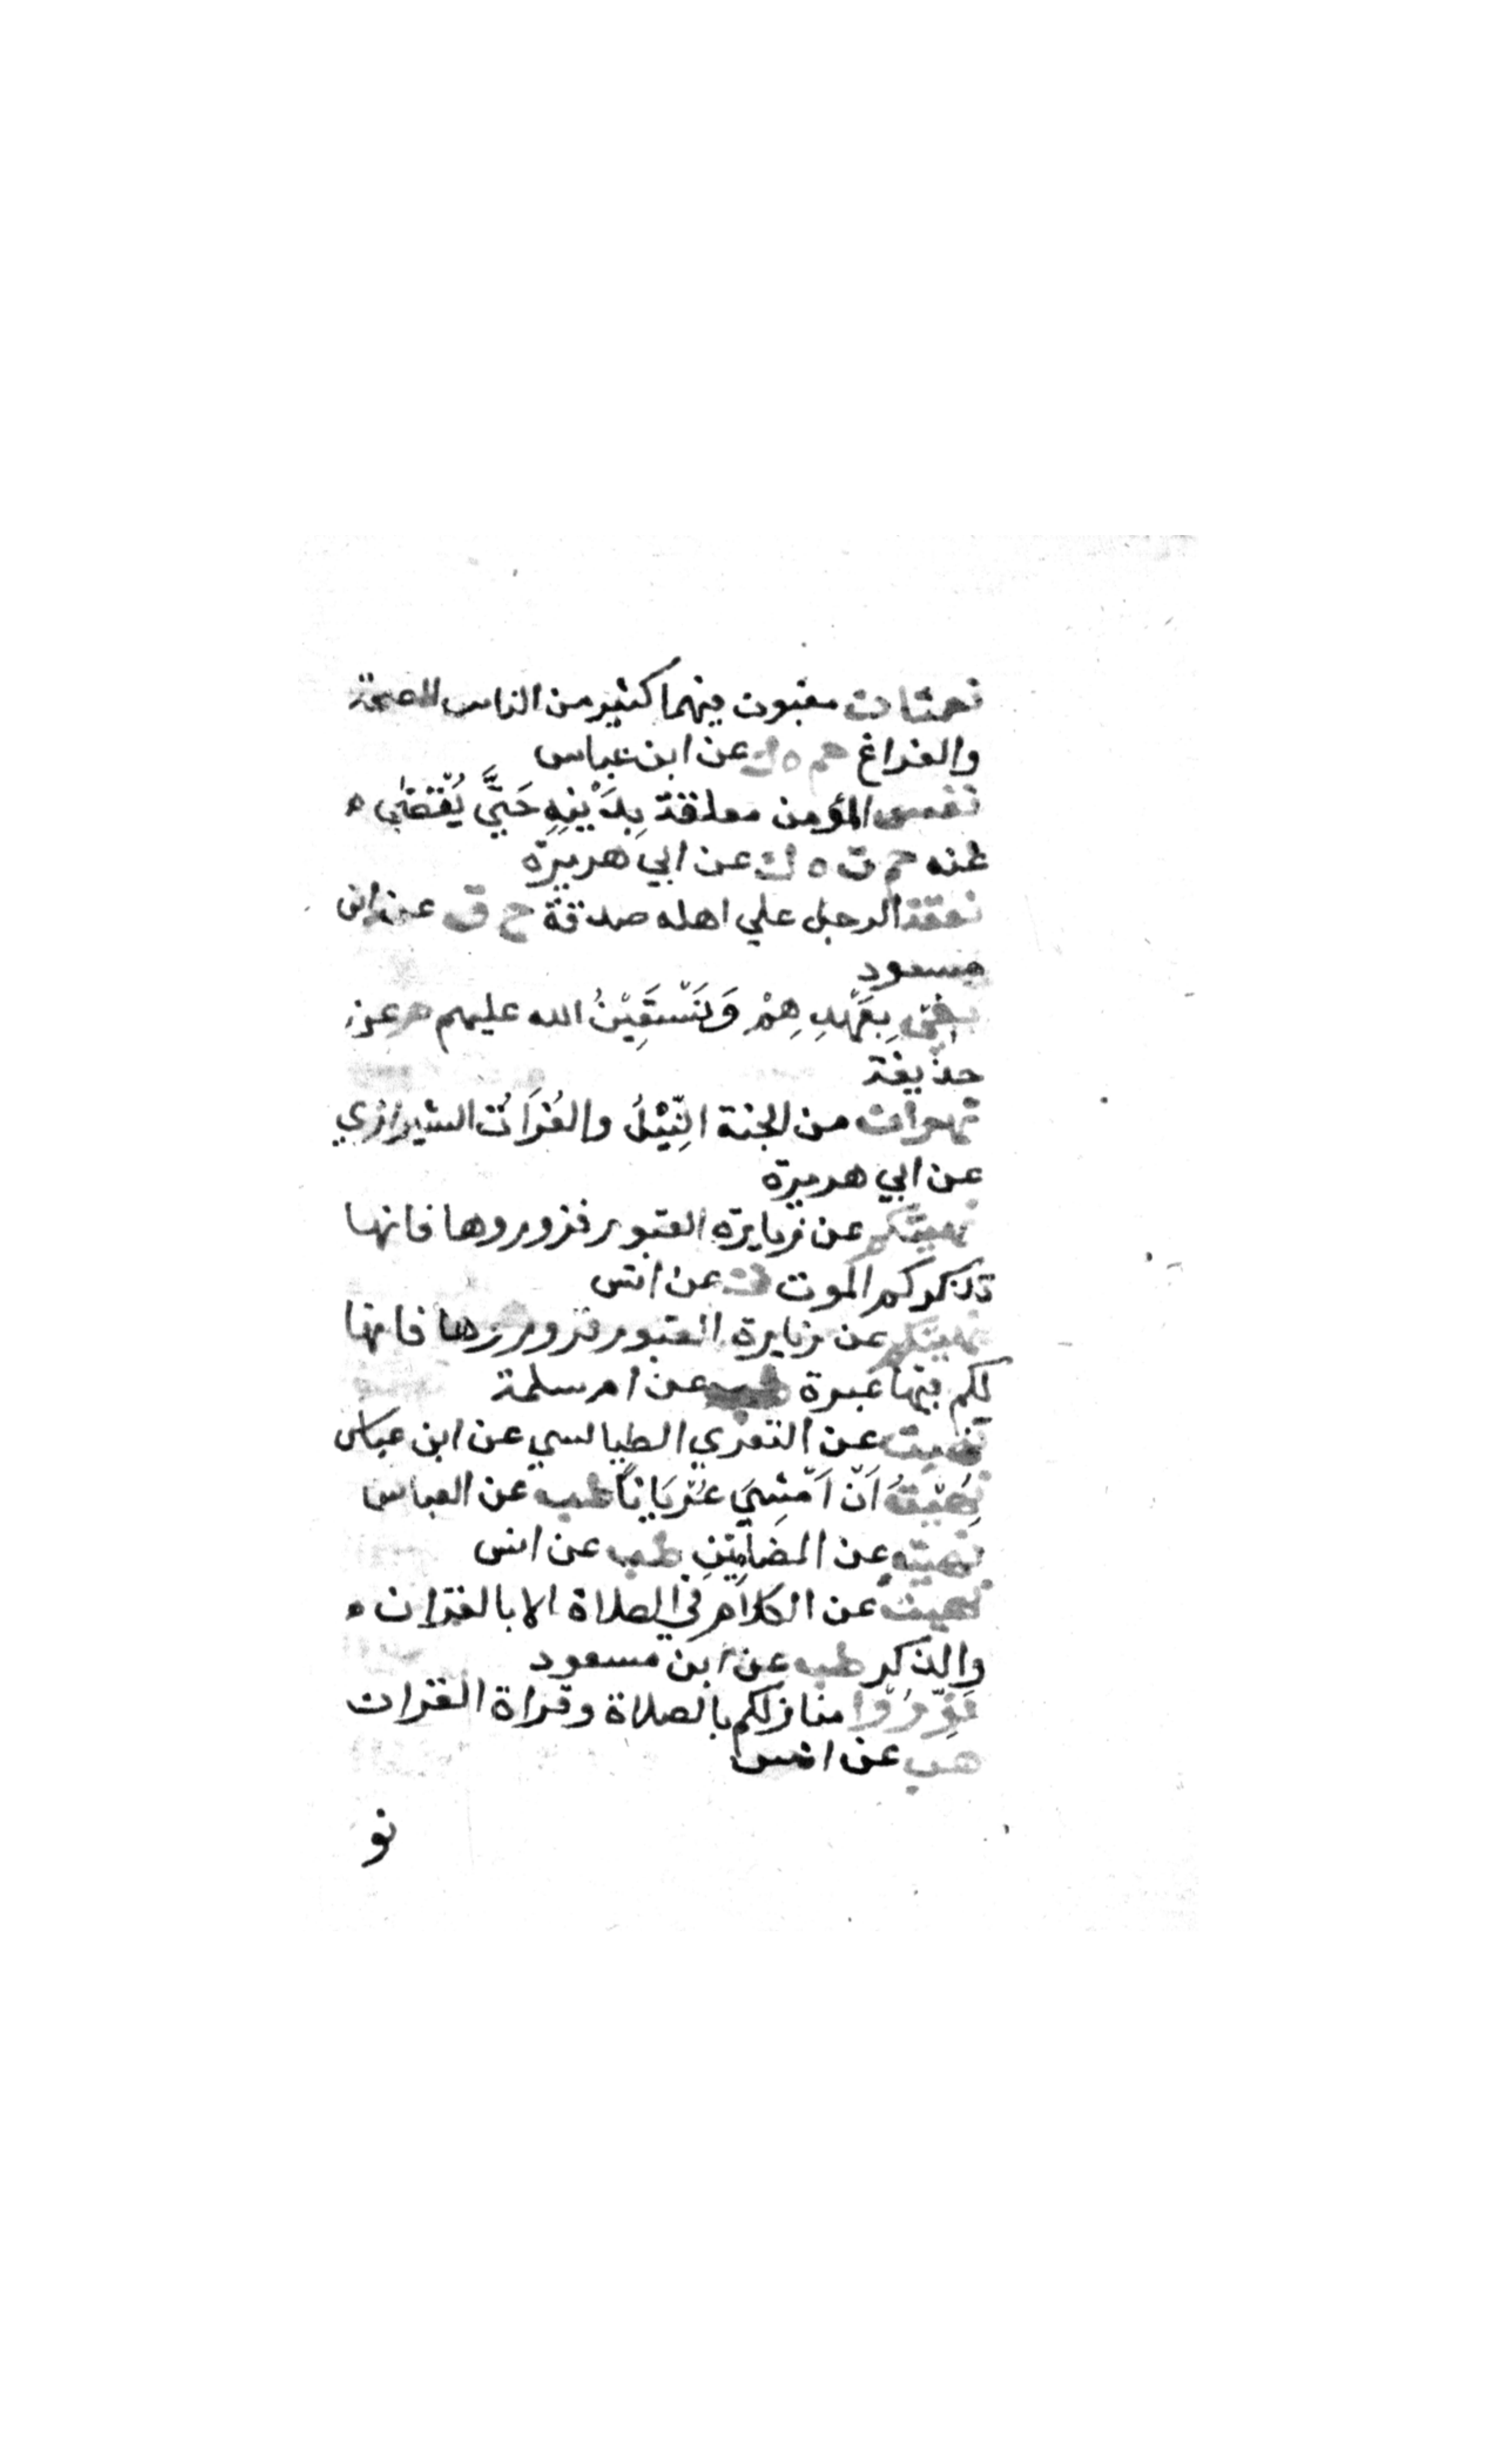 نعمتان مغبون فيهما كثير من الناس الصحة
والفراغ حم ه ك عن ابن عباس
نفس المؤمن معلقة بِدَيْنِهِ حَتَّي يُقْضٰي ه
عنه حم ت ه ك عن ابي هريرة
نفقة الرجل علي اهله صدقة خ ق عن ابن
مسعود
نفي بِعَهْدِهِمْ وَنَسْتَعِيْنُ الله عليهم م عن
حذيفة
نهران من الجنة النِّيْلُ والفُرَاتُ الشيرازي
عن ابي هريرة
نهيتكم عن زيارة القبور فزوروها فانها
تذكركم الموت ك عن انس
نهيتكم عن زيارة القبور فزوروها فانها
لكم فيها عبرة طب عن ام سلمة
نهيت عن التعري الطيالسي عن ابن عباس
نُهِيْتُ اَنْ اَمْشِيَ عُرْيَانًا طب عن العباس
نهيت عن المصَلِّيْنِ طب عن انس
نهيت عن الكلام في الصلاة الا بالقران ه
والذكر طب عن ابن مسعود
نَوِّرُوا منازلكم بالصلاة وقراة القران
هب عن انس
نو